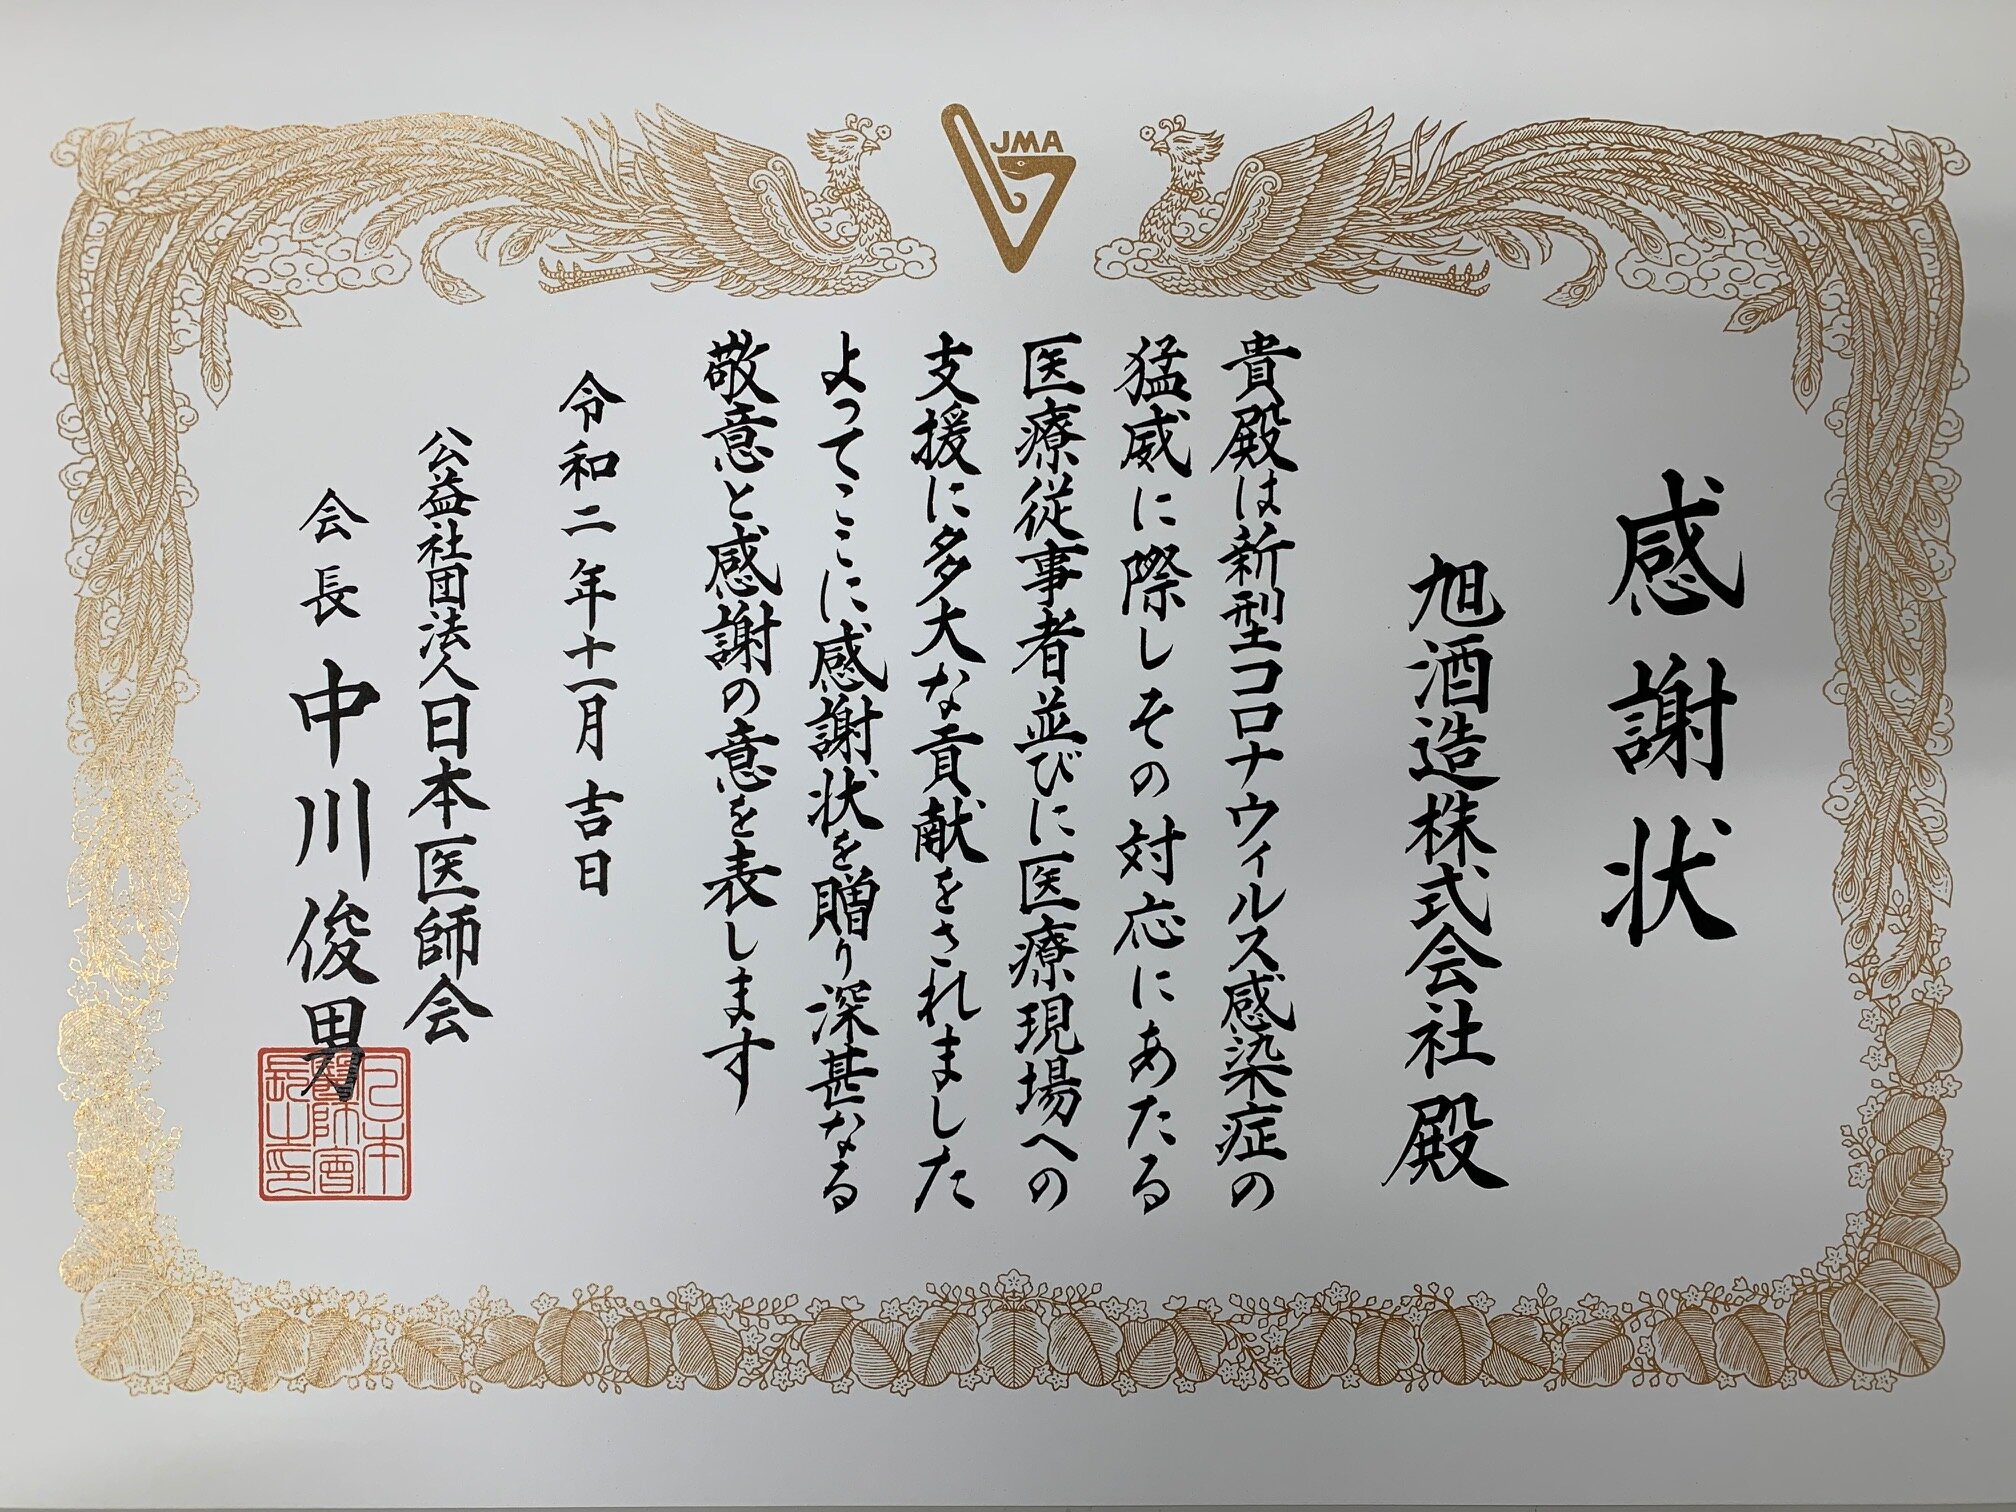 JMA
感謝状
旭酒造株式会社殿
貴殿は新型コロナウィルス感染症の
猛威に際しその対応にあたる
医療従事者並びに医療現場への
支援に多大な貢献をされました
よってここに感謝状を贈り深甚なる
敬意と感謝の意を表します
令和二年十一月吉日
公益社団法人日本医師会
会長 中川俊男
日本
醫師會
長之印